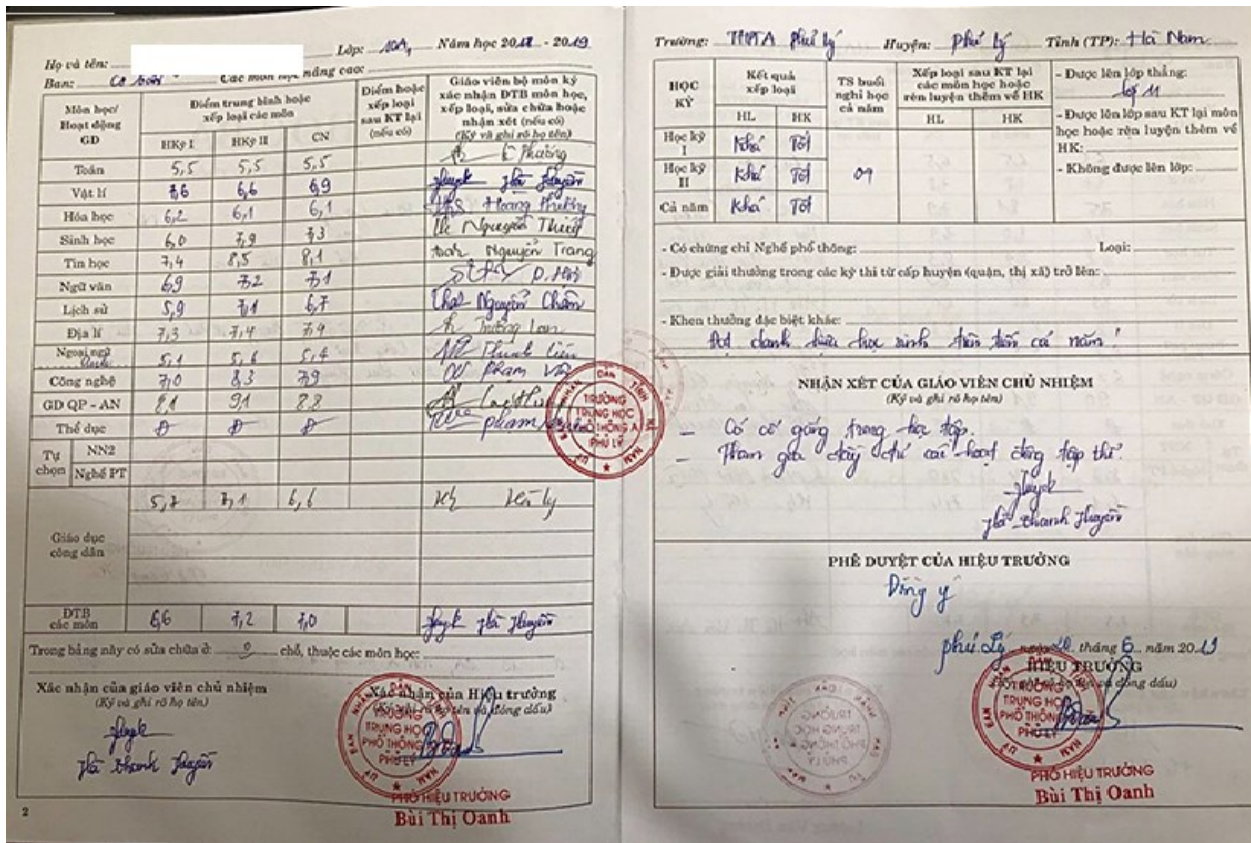 Họ và tên:
Lớp: 10A1 Năm học 2018 - 2019
Ban: Cơ bản Các môn học nâng cao:
Môn học/ Hoạt động GD
Điểm trung bình hoặc xếp loại các môn
HKỳ I HKỳ II CN
Điểm hoặc xếp loại sau KT lại (nếu có)
Giáo viên bộ môn ký xác nhận ĐTB môn học, xếp loại, sửa chữa hoặc nhận xét (nếu có)
(Ký và ghi rõ họ tên)
Toán 5,5 5,5 5,5 Phương
Vật lí 7,6 6,6 6,9 Hà Huyền
Hóa học 6,2 6,1 6,1 Hoàng Phương
Sinh học 6,0 7,9 7,3 Nguyễn Thuý
Tin học 7,4 8,5 8,1 Nguyễn Trang
Ngữ văn 6,9 7,2 7,1
Lịch sử 5,9 7,1 6,7 Nguyễn Chăm
Địa lí 7,3 7,4 7,4 Trương Lan
Ngoại ngữ 5,1 5,6 5,4 Liên
Công nghệ 7,0 8,3 7,9 Phạm
GD QP - AN 8,1 9,1 8,8
Thể dục Đ Đ Đ Phạm
Tự chọn
NN2
Nghề PT
5,7 7,1 6,6
Giáo dục công dân
ĐTB các môn 6,6 7,2 7,0 Hà Huyền
Trong bảng này có sửa chữa ở: 0 chỗ, thuộc các môn học:
Xác nhận của giáo viên chủ nhiệm
(Ký và ghi rõ họ tên)
Hà Thanh Huyền
Xác nhận của Hiệu trưởng
(Ký, ghi rõ họ tên và đóng dấu)
TRƯỜNG
TRUNG HỌC
PHỔ THÔNG
PHỦ LÝ
PHÓ HIỆU TRƯỞNG
Bùi Thị Oanh
2
TRƯỜNG
TRUNG HỌC
PHỔ THÔNG A
PHỦ LÝ
Trường: THPTA Phủ Lý Huyện: Phủ Lý Tỉnh (TP): Hà Nam
HỌC KỲ
Kết quả xếp loại
HL HK
TS buổi nghỉ học cả năm
Xếp loại sau KT lại các môn học hoặc rèn luyện thêm về HK
HL HK
Học kỳ I Khá Tốt
Học kỳ II Khá Tốt 01
Cả năm Khá Tốt
- Được lên lớp thẳng:
lớp 11
- Được lên lớp sau KT lại môn học hoặc rèn luyện thêm về HK:
- Không được lên lớp:
- Có chứng chỉ Nghề phổ thông: Loại:
- Được giải thưởng trong các kỳ thi từ cấp huyện (quận, thị xã) trở lên:
- Khen thưởng đặc biệt khác:
Đạt danh hiệu học sinh tiên tiến cả năm!
NHẬN XÉT CỦA GIÁO VIÊN CHỦ NHIỆM
(Ký và ghi rõ họ tên)
- Có cố gắng trong học tập.
- Tham gia đầy đủ các hoạt động tập thể.
Hà Thanh Huyền
PHÊ DUYỆT CỦA HIỆU TRƯỞNG
Đồng ý
Phủ Lý, ngày 20 tháng 6 năm 2019
HIỆU TRƯỞNG
(Ký, ghi rõ họ tên và đóng dấu)
TRƯỜNG
TRUNG HỌC
PHỔ THÔNG
PHỦ LÝ
PHÓ HIỆU TRƯỞNG
Bùi Thị Oanh